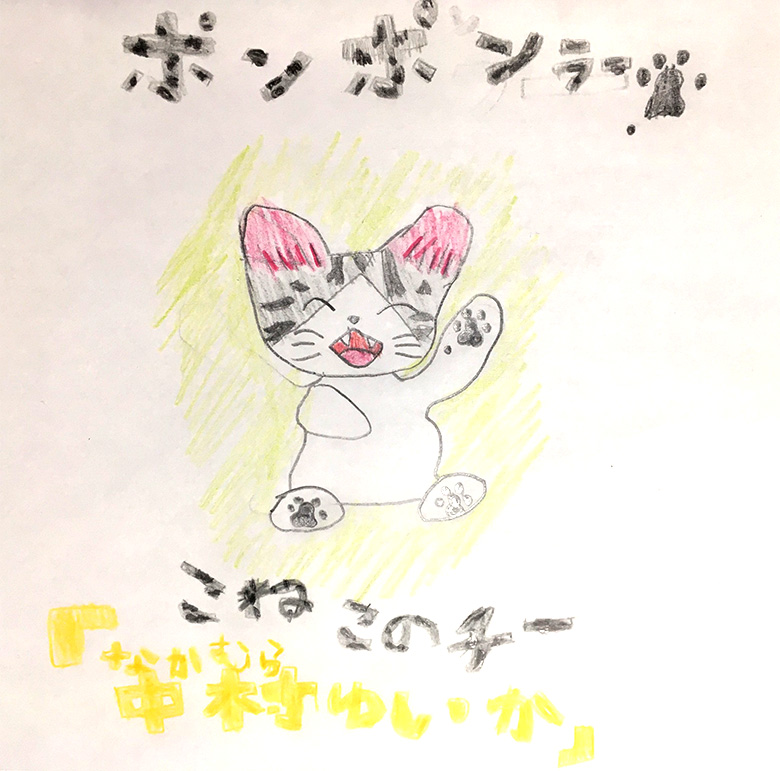 ポンポンラー
こねこのチー
「なかむら
中村ゆいか」